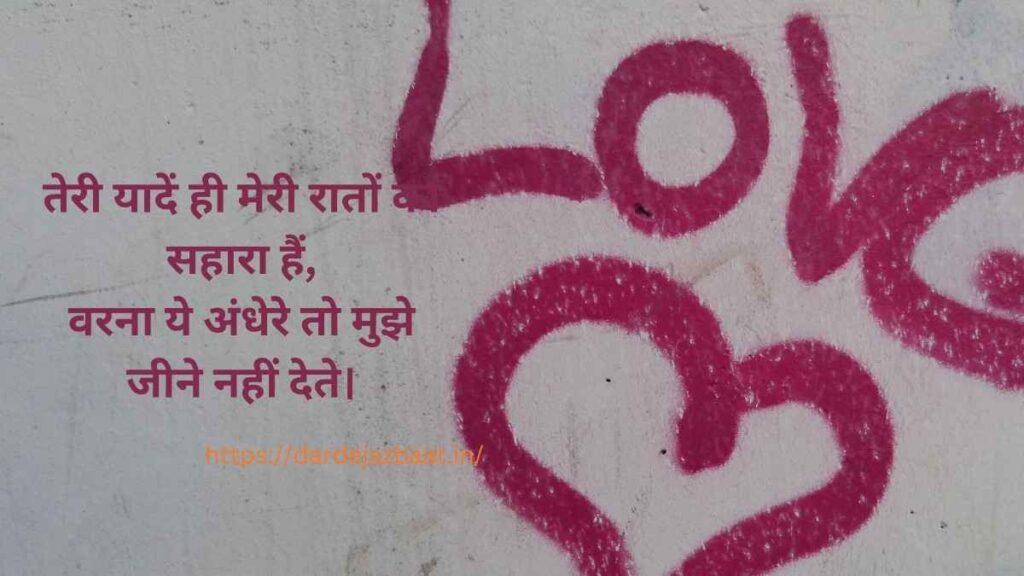 LOVE
तेरी यादें ही मेरी रातों
सहारा हैं,
वरना ये अंधेरे तो मुझे
जीने नहीं देते।
https://dardejazbaat.in/